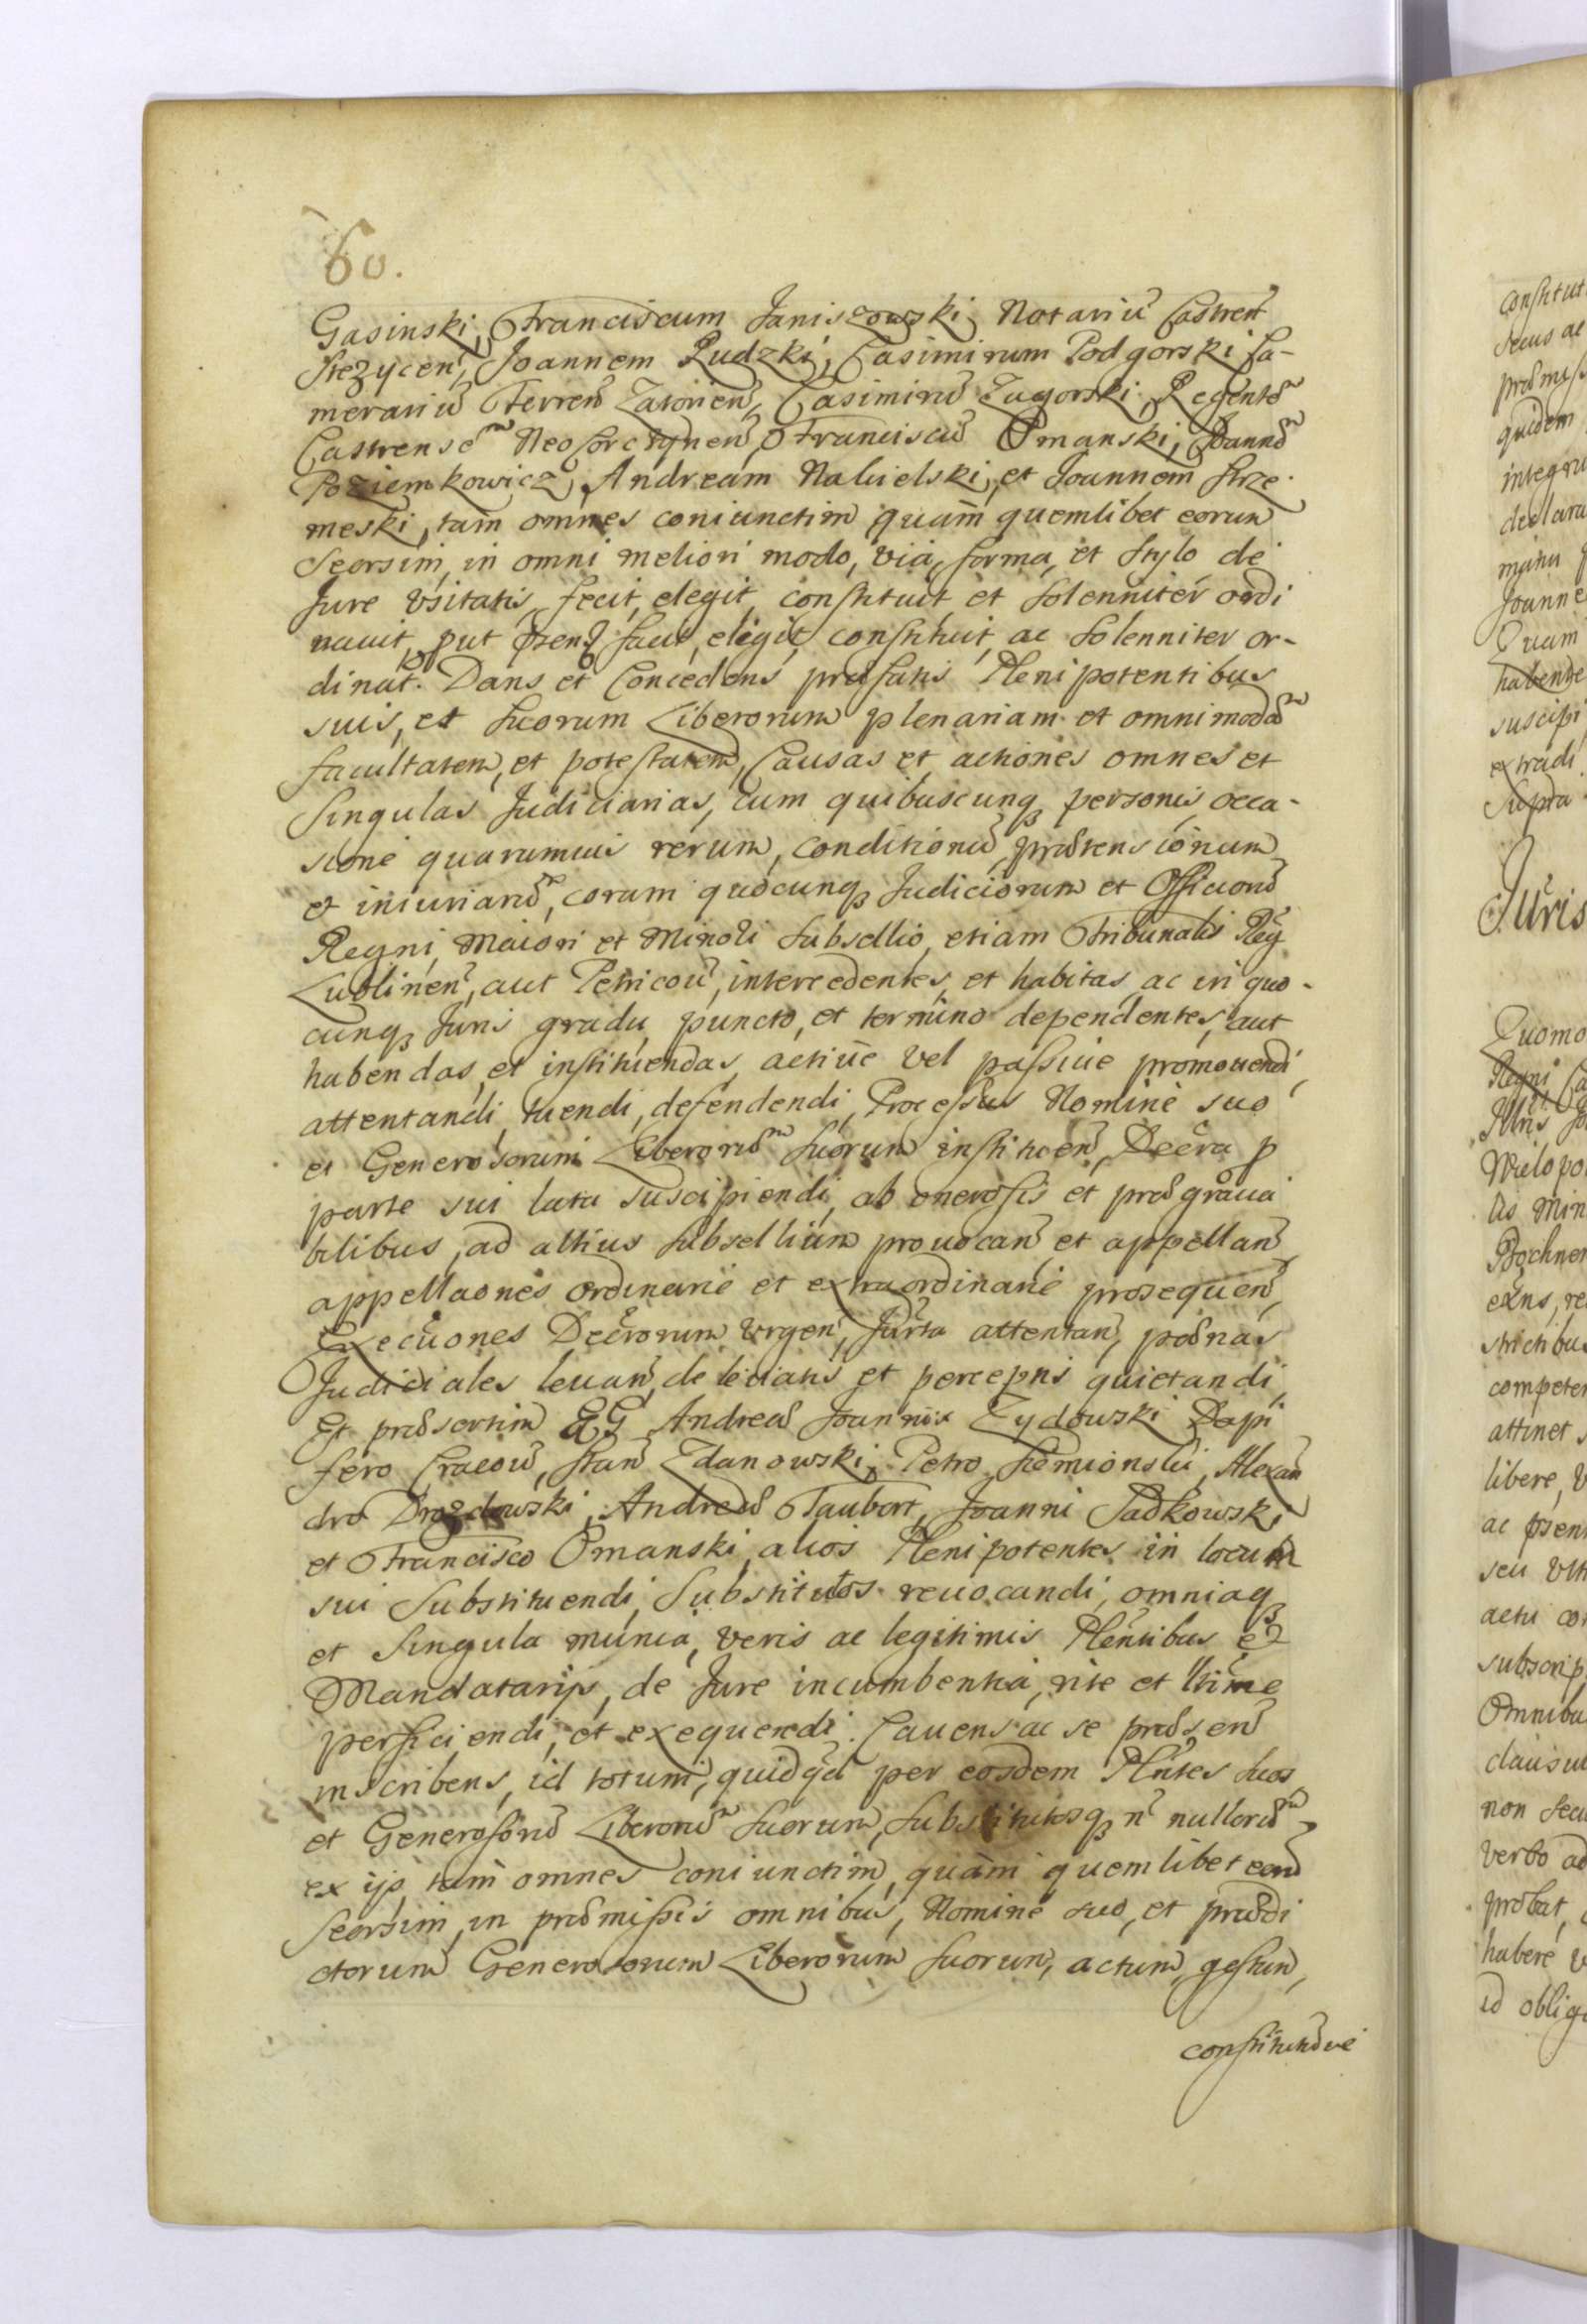 60.
Gasinski, Franciscum Janiszowski Notariu Castren
Stezycen, Joannem Rudzki, Casimirum Podgorski Ca-
merariu Terren Zatorien, Casimiru Zagorski, Regente
Castrense Neo Corczynen, Franciscu Omanski, Joanne
Poziemkowicz, Andream Nalielski, et Joannem Strze-
meski, tam omnes coniunctim quam quemlibet eorum
Seorsim, in omni meliori modo, via, forma, et Stylo de
Jure Vsitatis, fecit, elegit, constituit et Solenniter ordi
nauit, put pseng facit, eligit, constituit, ac Solenniter or-
dinat. Dans et Concedens præfatis Plenipotentibus
suis, et Suorum Liberorum plenariam et omnimoda
facultatem, et potestatem, Causas et actiones omnes et
Singulas Judiciarias, cum quibuscunq personis, occa-
sione quarumuis rerum, conditionu, prætensionum
et iniuriaru, coram quocunq Judiciorum et Officioru
Regni, Maiori et Minori Subsellio, etiam Tribunalis Reg
Lublinen, aut Petricou, intercedentes, et habitas, ac in quo-
cunq Juris gradu, puncto, et termino dependentes, aut
habendas, et instituendas, actiue Vel passiue promouendi,
attentandi, tuendi, defendendi, Processus Nomine suo
et Generosorum Liberoru Suorum instituen, Decra p
parte sui lata suscipiendi, ab onerosis et prægraua
bilibus, ad altius Subsellium prouocan et appellan
appellaones ordinarie et extraordinarie prosequen,
Execuones Decrorum Vrgen, Jurta attentan, poenas
Judiciales leuan, de leuatis et perceptis quietandi,
Et præsertim GG Andreæ Joanni Zydowski Dapi
fero Cracou, Stan Zdanowski, Petro Siemionski, Alexan
dro Drozdowski, Andreæ Taubert, Joanni Sadkowski
et Francisco Omanski, alios Plenipotentes in locum
sui Substituendi, Substitutos reuocandi, omniaq
et Singula munia, veris ac legitimis Plentibus et
Mandatarijs, de Jure incumbentia, rite et ltime
perficiendi, et exequendi. Cauens ac se præsen
inscribens, id totum, quidqd per eosdem Plntes suos
et Generosoru Liberoru Suorum, Substitutosq n nulloru
ex ijs, tam omnes coniunctim, quam quemlibet eoru
Seorsim, in præmissis omnibus, Nomine suo, et prædi
ctorum Generosorum Liberorum Suorum, actum, gestum,
constitutumve